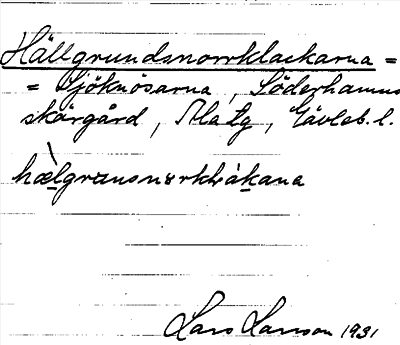 Hällgrundsnorrklackarna =
= Sjöknösarna, Söderhamns
skärgård, Ala tg, Gävleb. l.
hælgrunsnørklakana
Lars Larsson 1931